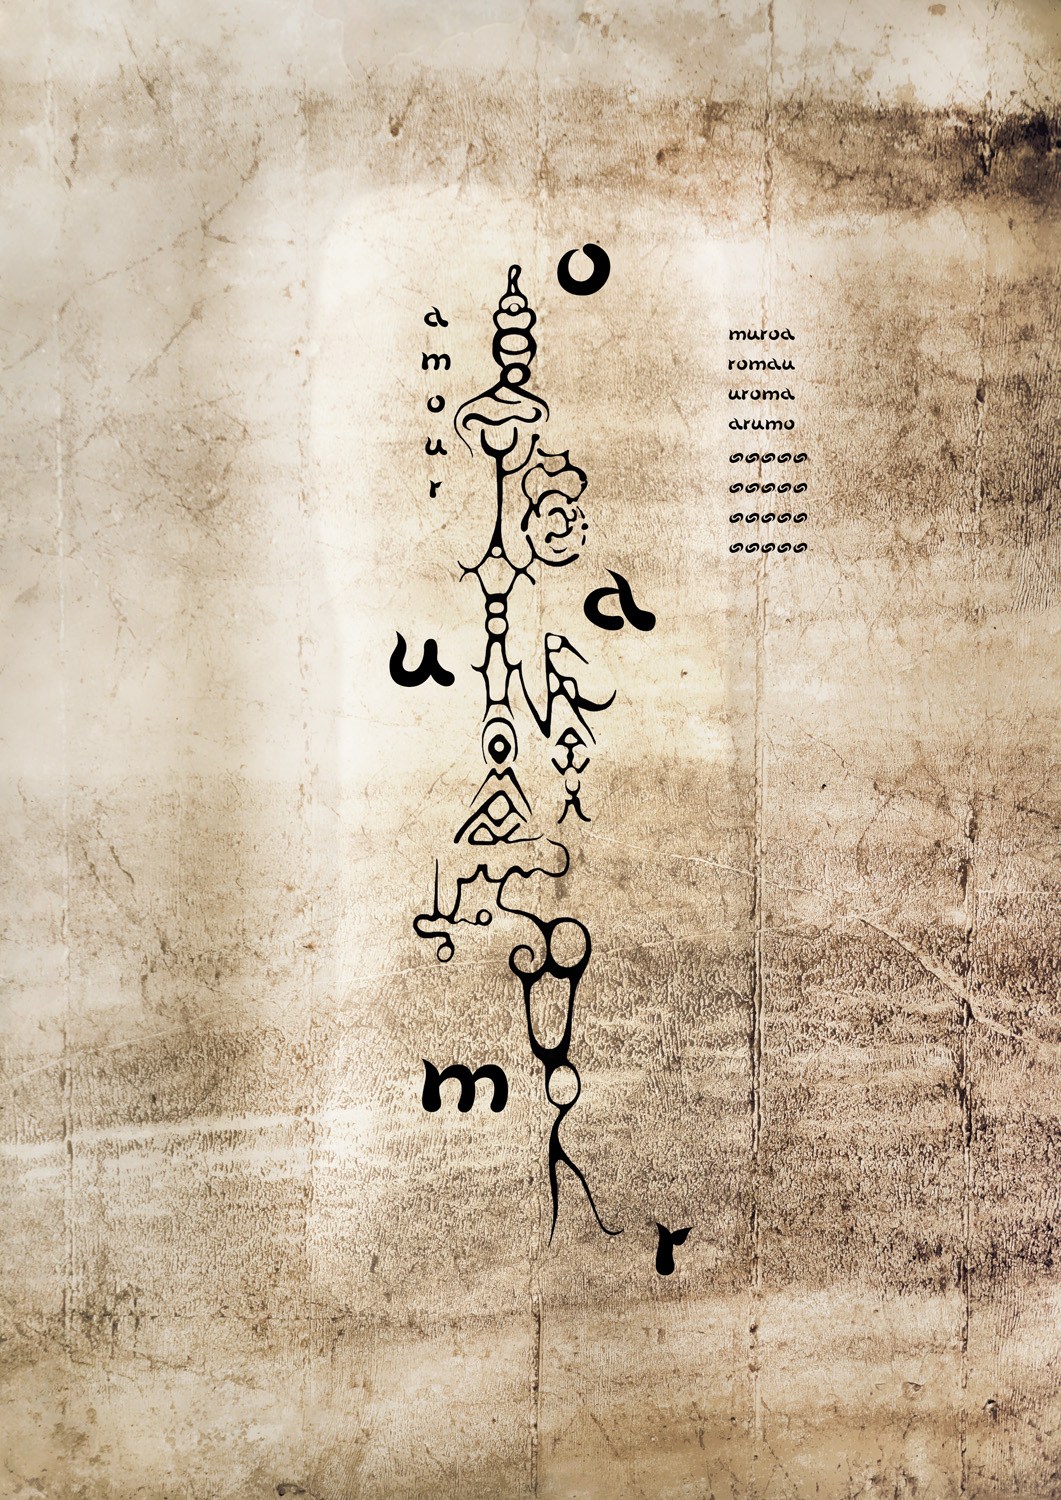 o
a
m
o
u
r
muroa
romau
uroma
arumo
a
u
m
r